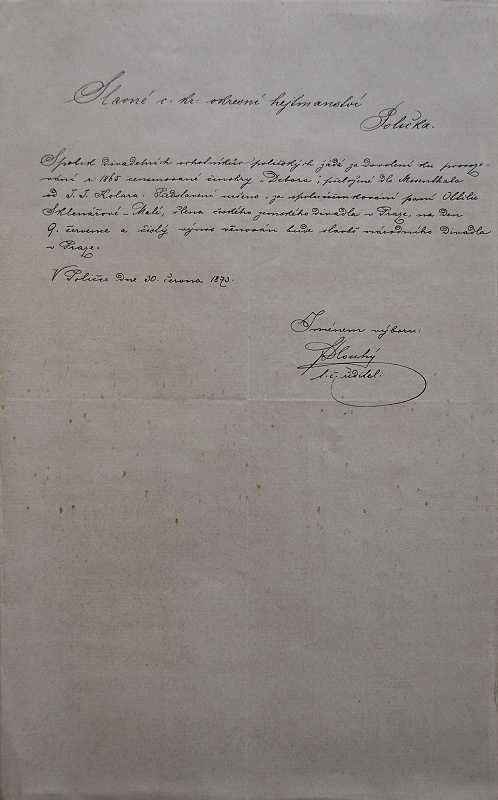 Slavné c. kr. okresní hejtmanství
Polička.
Spolek divadelních ochotníkův poličských žádá za dovolení ku provozo-
vání r. 1865 censurované činohry „Debora", přeložené dle Mosenthala
od J. J. Kolara. Představení určeno, za spoluúčinkování paní Otilie
Sklenářové-Malé, člena českého zemského divadla v Praze, na den
9. července a čistý výnos věnován bude stavbě národního divadla
v Praze.
V Poličce dne 30. června 1873.
Jménem výboru:
Dlouhý
t. č. ředitel.